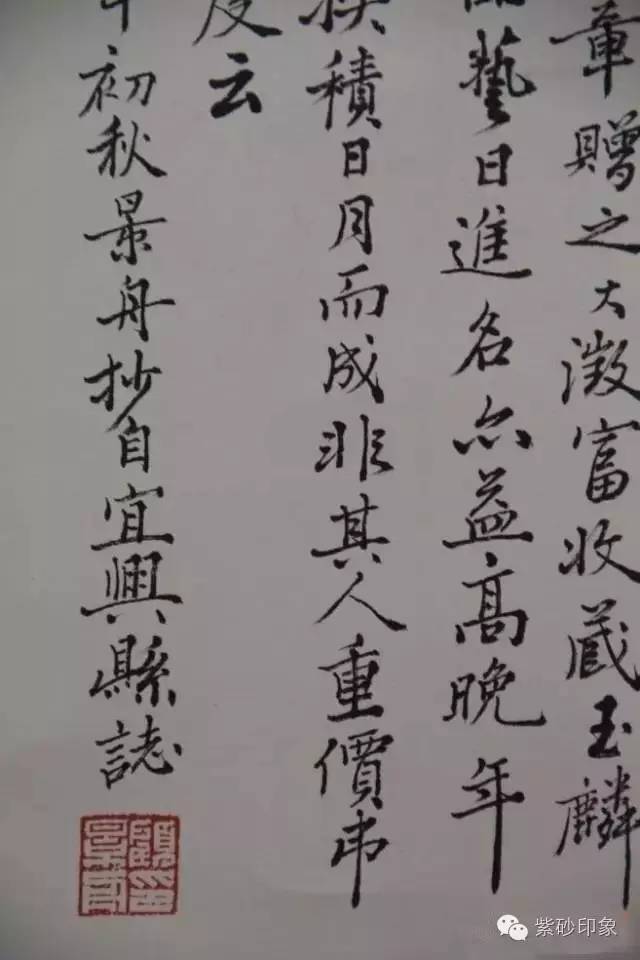 章贈之大澂富收藏玉麟
藝日進名亦益高晚年
積日月而成非其人重價市
度云
初秋景舟抄自宜興縣誌
顧景舟印
紫砂印象